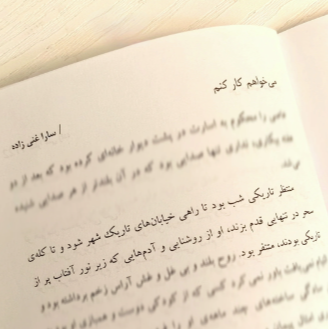 می‌خواهم کار کنم
/ سارا غنی زاده
را محکوم به اسارت در پشت دیوار خانه‌ای کرده بود که بعد از دو
بیکاری، نداری تنها صدایی بود که در آن بلندتر از هر صدایی شنیده
می‌شد.
منتظر تاریکی شب بود تا راهی خیابان‌های تاریک شهر شود و تا کله‌ی
سحر در تنهایی قدم بزند، او از روشنایی و آدم‌هایی که زیر نور آفتاب پر از
تاریکی بودند، متنفر بود. روح بلند و بی غل و غش آراس زخم برداشته بود و
باور نمی کرد کسی که از کودکی دوست و همبازی او